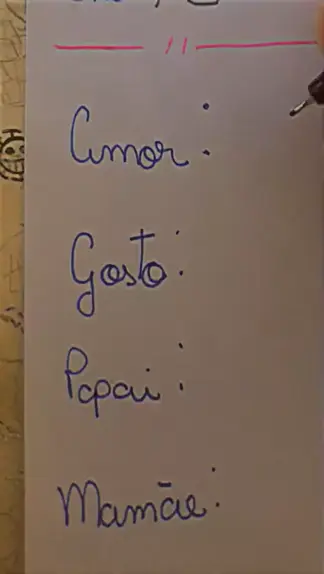 Amor:
Gosto:
Papai:
Mamãe: